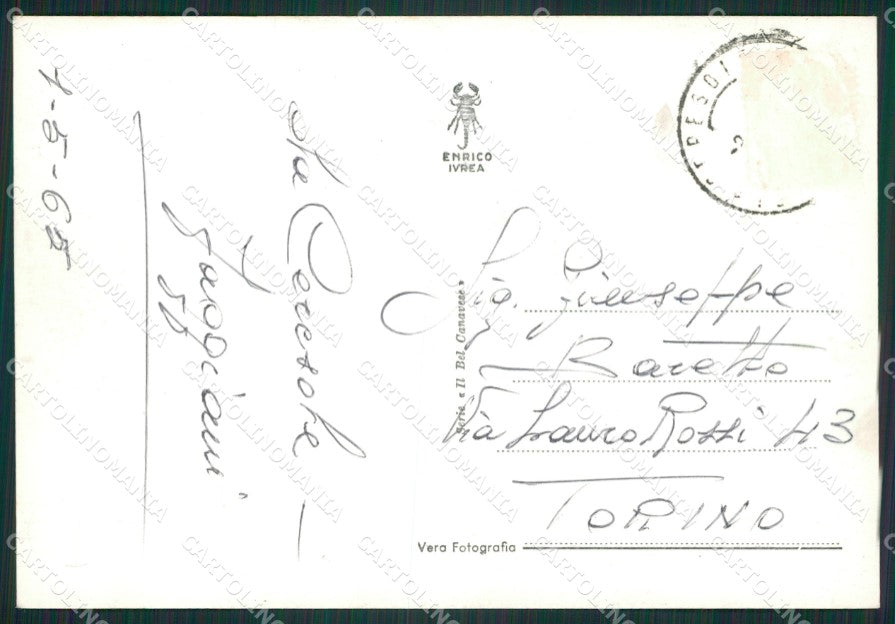 1-5-65
Da Ceresole
ENRICO
IVREA
Sig. Giuseppe
Baretto
Via Lauro Rossi 43
TORINO
Serie « Il Bel Canavese »
Vera Fotografia
CARTOLINOMANIA